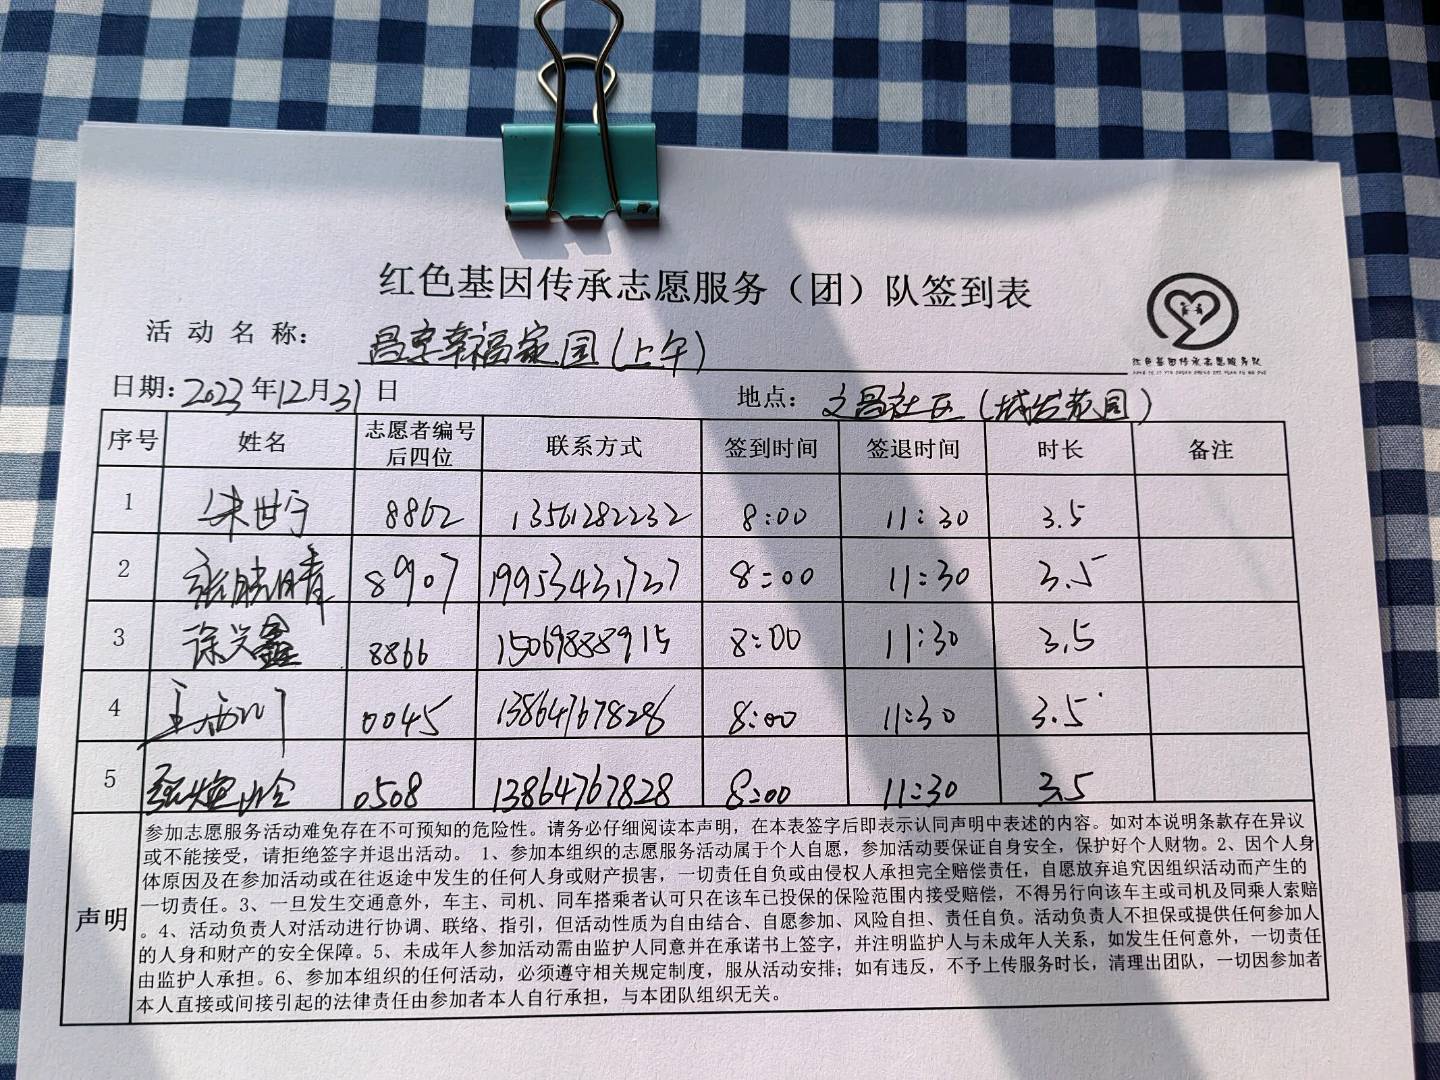 红色基因传承志愿服务（团）队签到表
红色基因传承志愿服务队
活动名称： 昌宁幸福家园(上午)
日期：2023年12月31日 地点：文昌社区(城发花园)
序号 姓名 志愿者编号后四位 联系方式 签到时间 签退时间 时长 备注
1 朱世宁 8862 13561282232 8:00 11:30 3.5
2 张晓晴 8907 19953431727 8:00 11:30 3.5
3 徐兴鑫 8866 15069888915 8:00 11:30 3.5
4 0045 13864767828 8:00 11:30 3.5
5 0508 13864767828 8:00 11:30 3.5
声明
参加志愿服务活动难免存在不可预知的危险性。请务必仔细阅读本声明，在本表签字后即表示认同声明中表述的内容。如对本说明条款存在异议
或不能接受，请拒绝签字并退出活动。 1、参加本组织的志愿服务活动属于个人自愿，参加活动要保证自身安全，保护好个人财物。2、因个人身
体原因及在参加活动或在往返途中发生的任何人身或财产损害，一切责任自负或由侵权人承担完全赔偿责任，自愿放弃追究因组织活动而产生的
一切责任。3、一旦发生交通意外，车主、司机、同车搭乘者认可只在该车已投保的保险范围内接受赔偿，不得另行向该车主或司机及同乘人索赔
。4、活动负责人对活动进行协调、联络、指引，但活动性质为自由结合、自愿参加、风险自担、责任自负。活动负责人不担保或提供任何参加人
的人身和财产的安全保障。5、未成年人参加活动需由监护人同意并在承诺书上签字，并注明监护人与未成年人关系，如发生任何意外，一切责任
由监护人承担。6、参加本组织的任何活动，必须遵守相关规定制度，服从活动安排；如有违反，不予上传服务时长，清理出团队，一切因参加者
本人直接或间接引起的法律责任由参加者本人自行承担，与本团队组织无关。